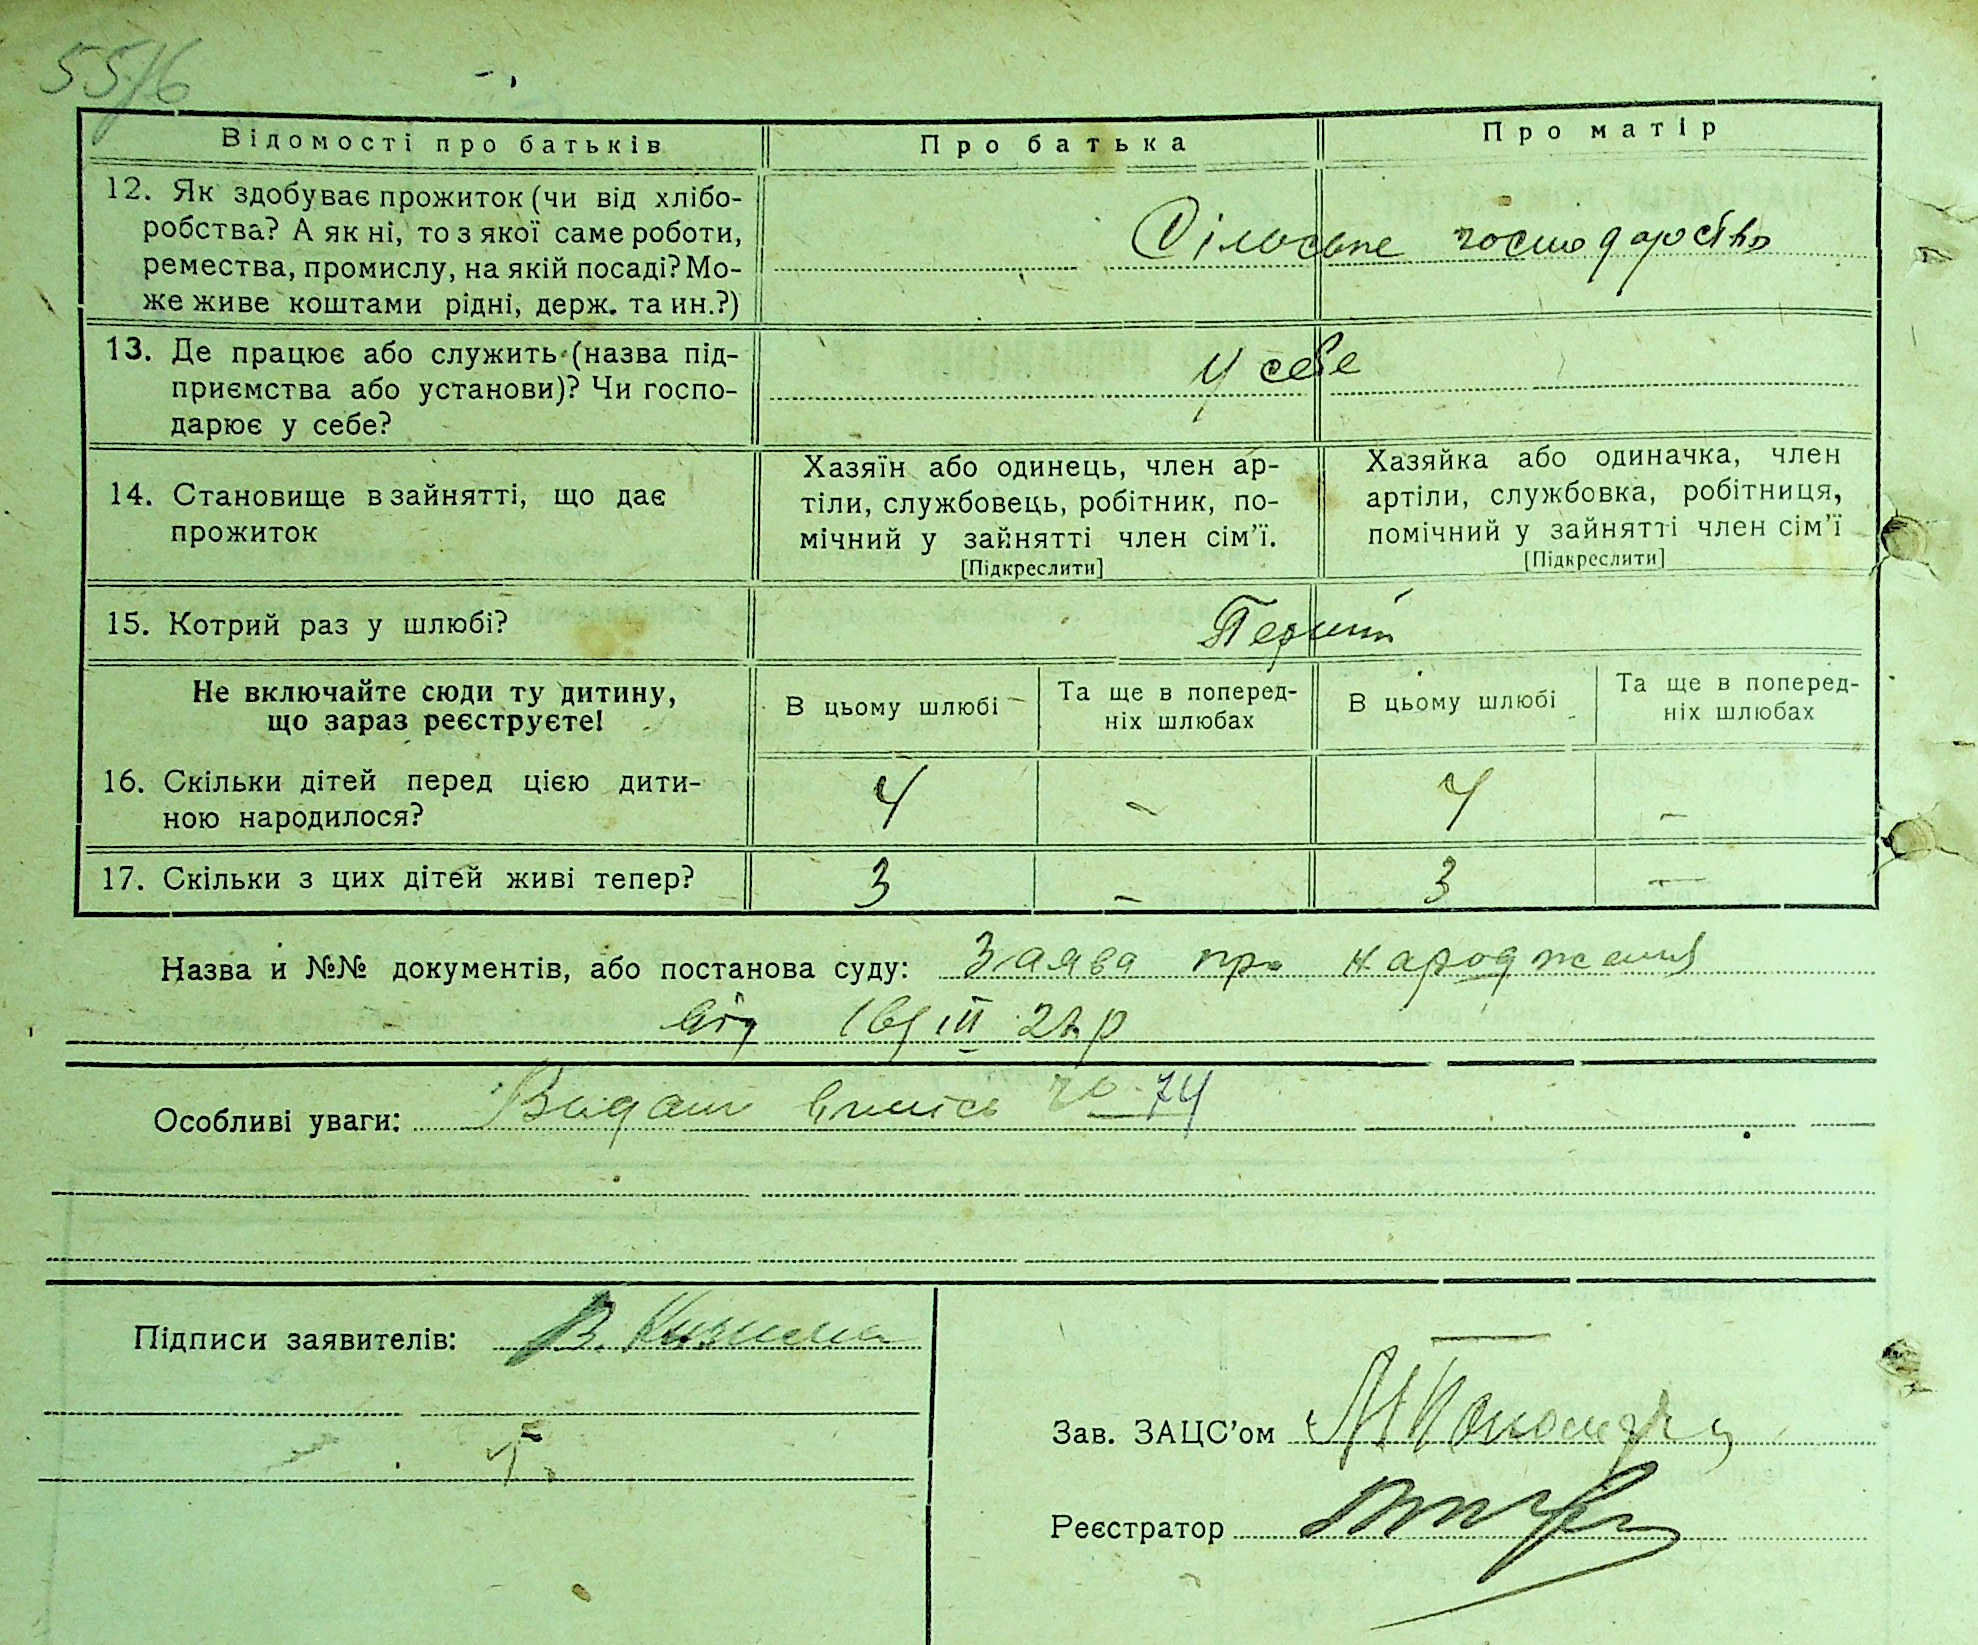 55/6
Відомості про батьків
Про батька
Про матір
12. Як здобуває прожиток (чи від хлібо-
робства? А як ні, то з якої саме роботи,
ремества, промислу, на якій посаді? Мо-
же живе коштами рідні, держ. та ин.?)
Сільське господарство
13. Де працює або служить (назва під-
приємства або установи)? Чи госпо-
дарює у себе?
У себе
14. Становище в зайнятті, що дає
прожиток
Хазяїн або одинець, член ар-
тіли, службовець, робітник, по-
мічний у зайнятті член сім'ї.
[Підкреслити]
Хазяйка або одиначка, член
артіли, службовка, робітниця,
помічний у зайнятті член сім'ї
[Підкреслити]
15. Котрий раз у шлюбі?
Перший
Не включайте сюди ту дитину,
що зараз реєструєте!
В цьому шлюбі
Та ще в поперед-
ніх шлюбах
В цьому шлюбі
Та ще в поперед-
ніх шлюбах
16. Скільки дітей перед цією дити-
ною народилося?
4 – 4 –
17. Скільки з цих дітей живі тепер?
3 – 3 –
Назва й №№ документів, або постанова суду: Заява про народження
від
Особливі уваги: Видано випись 74
Підписи заявителів: В.
Зав. ЗАЦС'ом
Реєстратор